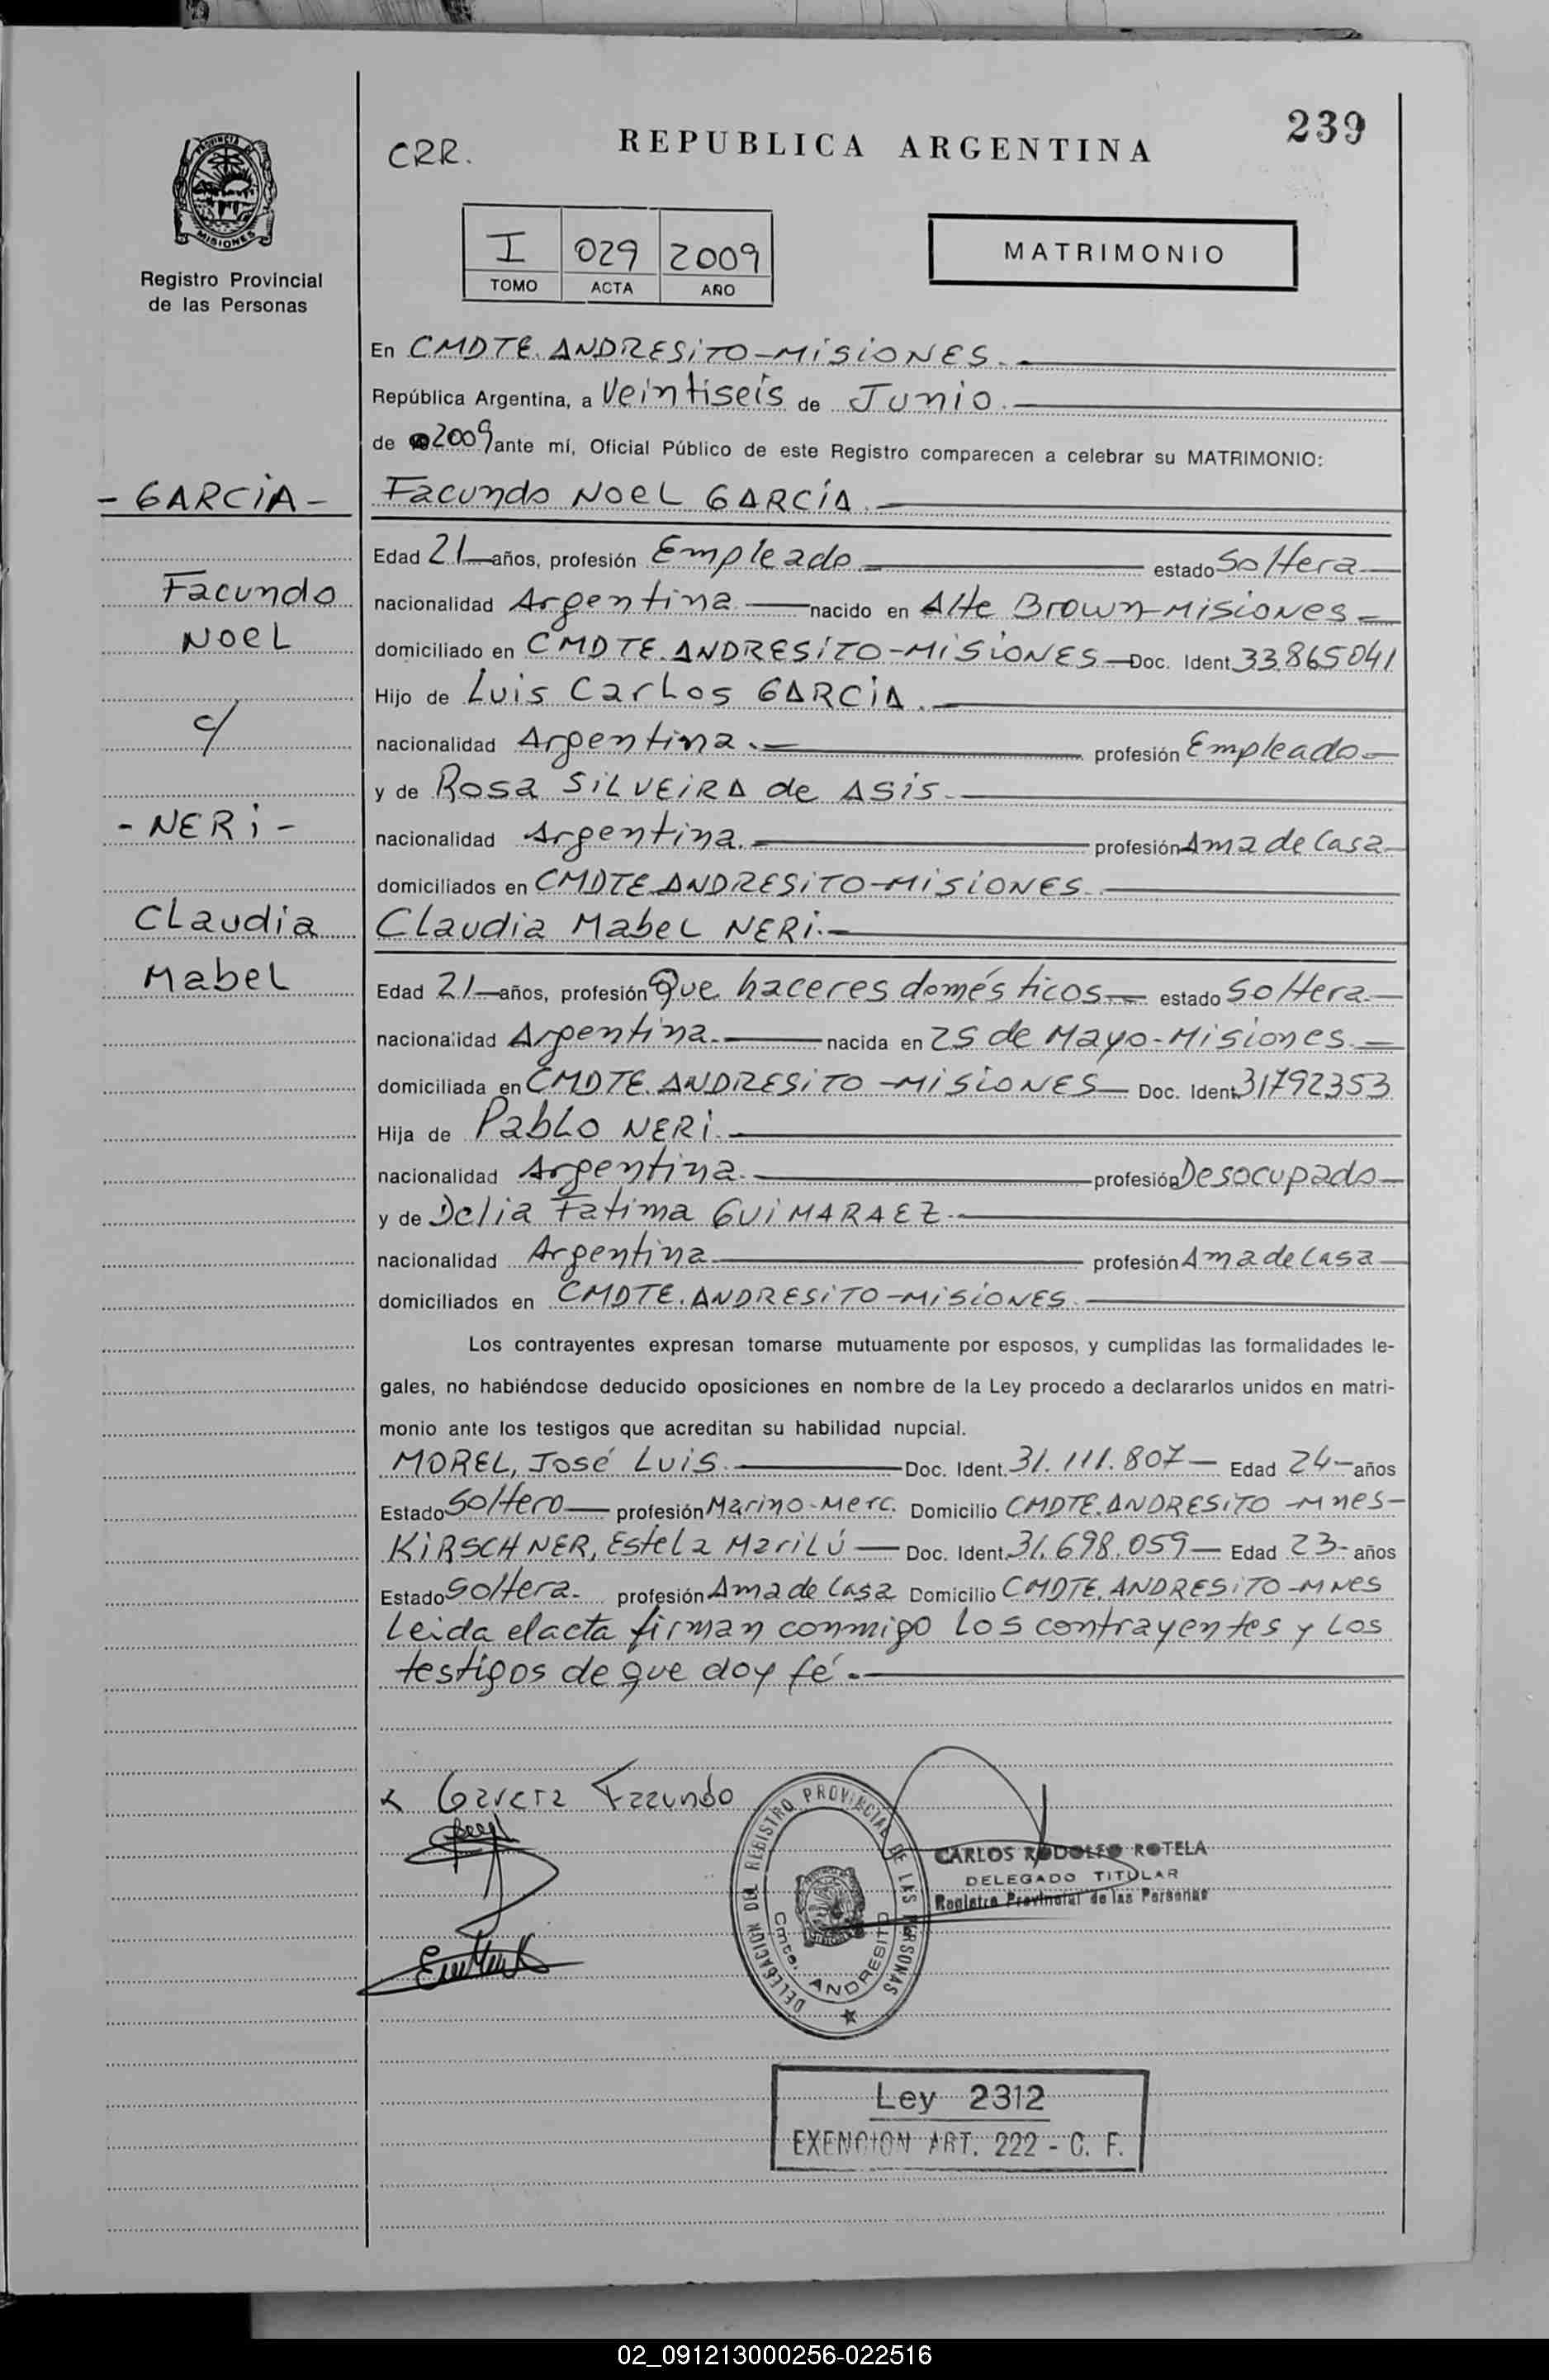 239
CRR.
REPUBLICA ARGENTINA
PROVINCIA DE
MISIONES
Registro Provincial
de las Personas
I 029 2009
TOMO ACTA AÑO
MATRIMONIO
En CMDTE. ANDRESiTO-MiSiONES.
República Argentina, a Veintiseis de Junio.
de 2009 ante mí, Oficial Público de este Registro comparecen a celebrar su MATRIMONIO:
- GARCiA - Facundo NoeL GARCÍA.
Edad 21 años, profesión Empleado. estado Soltera
Facundo nacionalidad Argentina. nacido en Alte Brown-Misiones
NoeL domiciliado en CMDTE. ANDRESiTO-MiSiONES Doc. Ident 33.865041
Hijo de Luis CarLos GARCiA.
c/ nacionalidad Argentina. profesión Empleado
y de Rosa SiLVEiRA de ASis.
- NERi - nacionalidad Argentina. profesión Ama de Casa
domiciliados en CMDTE ANDRESiTO-MiSiONES.
CLaudia Claudia MabeL NERi.
MabeL Edad 21 años, profesión Que haceres domésticos estado Soltera
nacionalidad Argentina. nacida en 25 de Mayo-Misiones.
domiciliada en CMDTE. ANDRESiTO-MiSiONES Doc. Ident. 31792353
Hija de PabLo NERi.
nacionalidad Argentina. profesión Desocupado
y de Delia Fatima GUiMARAEZ.
nacionalidad Argentina. profesión Ama de Casa
domiciliados en CMDTE. ANDRESiTO-MiSiONES.
Los contrayentes expresan tomarse mutuamente por esposos, y cumplidas las formalidades le-
gales, no habiéndose deducido oposiciones en nombre de la Ley procedo a declararlos unidos en matri-
monio ante los testigos que acreditan su habilidad nupcial.
MOREL, José Luis. Doc. Ident. 31.111.807 Edad 24 años
Estado Soltero profesión Marino-Merc. Domicilio CMDTE. ANDRESiTO-Mnes-
KiRSCHNER, Estela MariLú Doc. Ident. 31.698.059 Edad 23 años
Estado Soltera. profesión Ama de Casa Domicilio CMDTE. ANDRESiTO-Mnes
Leida el acta firman conmigo Los contrayentes y Los
testigos de que doy fé.
x Garcia Facundo
DELEGACION DEL REGISTRO PROVINCIAL DE LAS PERSONAS
Cmte. ANDRESITO
CARLOS RODOLFO ROTELA
DELEGADO TITULAR
Registro Provincial de las Personas
Ley 2312
EXENCION ART. 222 - C. F.
02_091213000256-022516